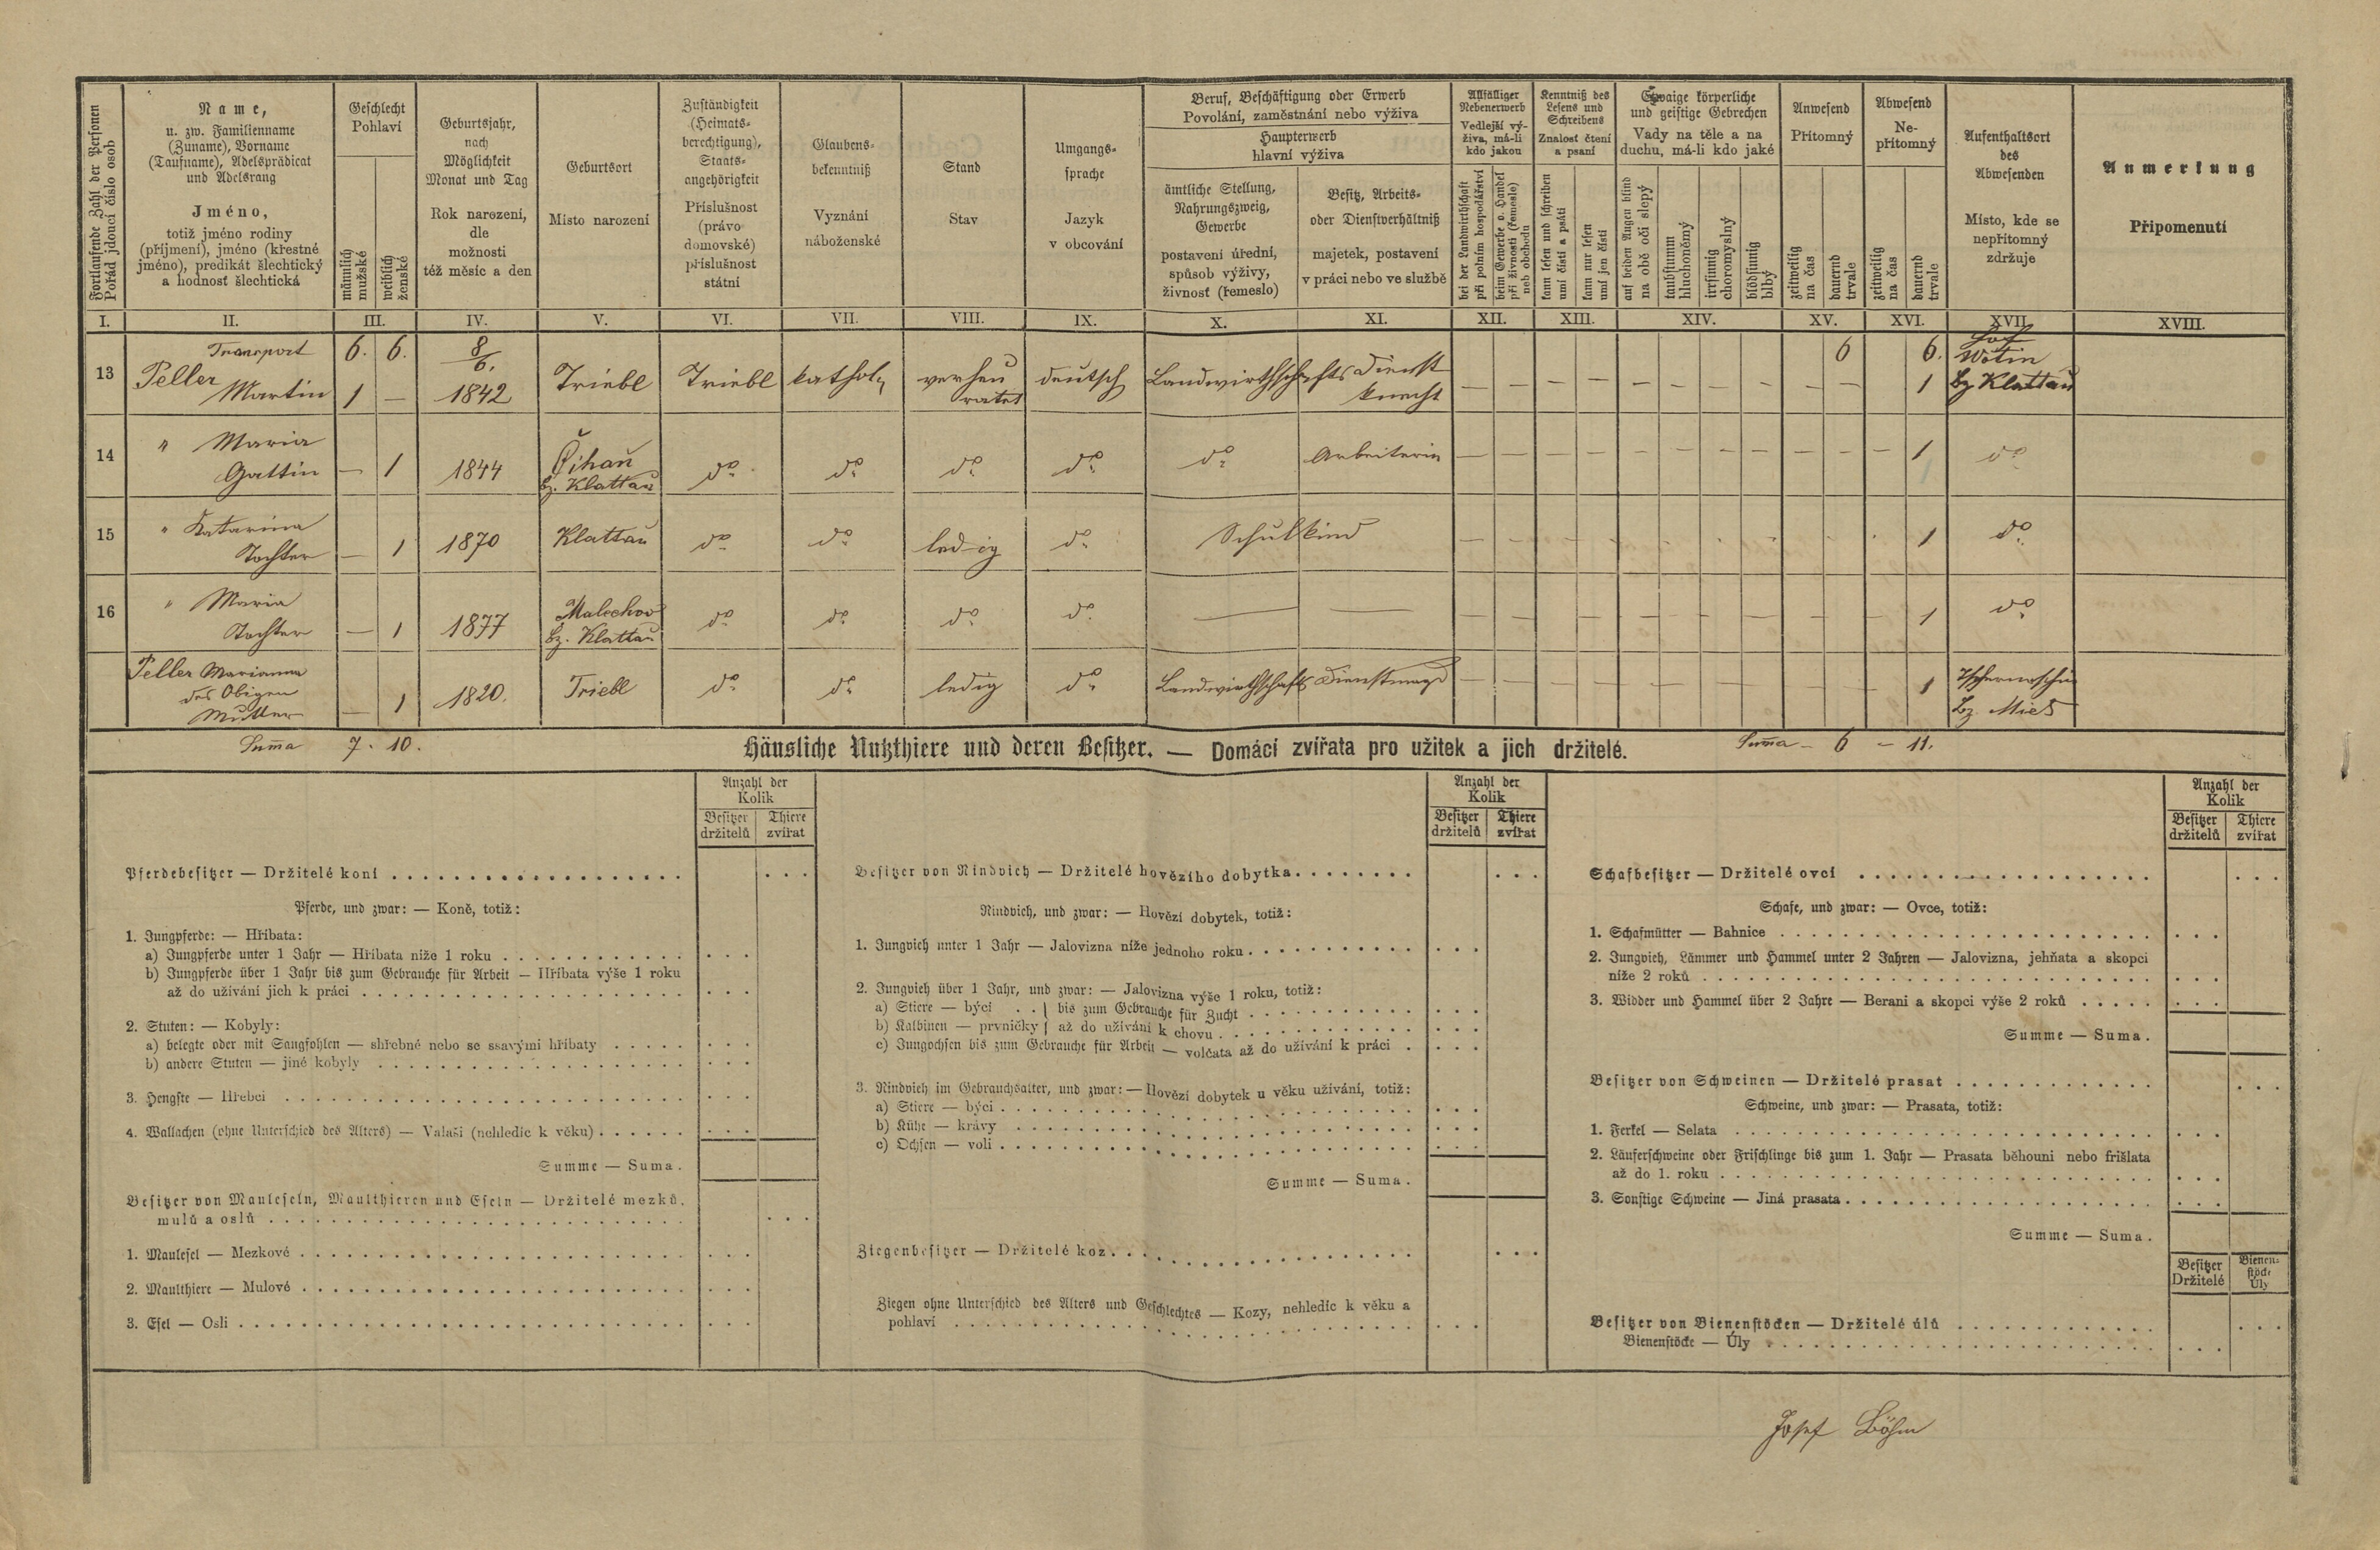 Fortlaufende Zahl der Personen
Pořád jdoucí číslo osob
Name,
u. zw. Familienname
(Zuname), Vorname
(Taufname), Adelsprädicat
und Adelsrang
Jméno,
totiž jméno rodiny
(příjmení), jméno (křestné
jméno), predikát šlechtický
a hodnosť šlechtická
Geschlecht
Pohlaví
männlich
mužské
weiblich
ženské
Geburtsjahr,
nach
Möglichkeit
Monat und Tag
Rok narození,
dle
možnosti
též měsíc a den
Geburtsort
Místo narození
Zuständigkeit
(Heimats-
berechtigung),
Staats-
angehörigkeit
Příslušnost
(právo
domovské)
příslušnost
státní
Glaubens-
bekenntniß
Vyznání
náboženské
Stand
Stav
Umgangs-
sprache
Jazyk
v obcování
Beruf, Beschäftigung oder Erwerb
Povolání, zaměstnání nebo výživa
Haupterwerb
hlavní výživa
ämtliche Stellung,
Nahrungszweig,
Gewerbe
postavení úřední,
způsob výživy,
živnosť (řemeslo)
Besitz, Arbeits-
oder Dienstverhältniß
majetek, postavení
v práci nebo ve službě
Allfälliger
Nebenerwerb
Vedlejší vý-
živa, má-li
kdo jakou
bei der Landwirthschaft
při polním hospodářství
beim Gewerbe o. Handel
při živnosti (řemesle)
neb obchodu
Kenntniß des
Lesens und
Schreibens
Znalosť čtení
a psaní
kann lesen und schreiben
umí čísti a psáti
kann nur lesen
umí jen čísti
Etwaige körperliche
und geistige Gebrechen
Vady na těle a na
duchu, má-li kdo jaké
auf beiden Augen blind
na obě oči slepý
taubstumm
hluchoněmý
irrsinnig
choromyslný
blödsinnig
blbý
Anwesend
Přítomný
zeitweilig
na čas
dauernd
trvale
Abwesend
Ne-
přítomný
zeitweilig
na čas
dauernd
trvale
Aufenthaltsort
des
Abwesenden
Místo, kde se
nepřítomný
zdržuje
Anmerkung
Připomenutí
I. II. III. IV. V. VI. VII. VIII. IX. X. XI. XII. XIII. XIV. XV. XVI. XVII. XVIII.
Transport 6. 6. 6 6.
13 Peller Martin 1 — 8/6. 1842 Triebl Triebl kathol. verheu ratet deutsch Landwirthschafts Dienst knecht — — — — — — — — — — — 1 Hof Wotin Bz Klattau
14 " Maria Gattin — 1 1844 Čihaň Bz. Klattau do do do do do Arbeiterin — — — — — — — — — — — 1 do
15 " Katarina Tochter — 1 1870 Klattau do do ledig do Schulkind — — — — — — — — — — — 1 do
16 " Maria Tochter — 1 1877 Malechov Bz. Klattau do do do do — — — — — — — — — — — — — 1 do
Peller Marianna des Obigen Mutter — 1 1820. Triebl do do ledig do Landwirthschafts Dienstmagd — — — — — — — — — — — 1 Tschernoschin Bz. Mies
Summa 7. 10.
Summa — 6 — 11.
Häusliche Nutzthiere und deren Besitzer. — Domácí zvířata pro užitek a jich držitelé.
Anzahl der
Kolik
Besitzer
držitelů
Thiere
zvířat
Pferdebesitzer — Držitelé koní
Pferde, und zwar: — Koně, totiž:
1. Jungpferde: — Hříbata:
a) Jungpferde unter 1 Jahr — Hříbata níže 1 roku
b) Jungpferde über 1 Jahr bis zum Gebrauche für Arbeit — Hříbata výše 1 roku
až do užívání jich k práci
2. Stuten: — Kobyly:
a) belegte oder mit Saugfohlen — shřebné nebo se ssavými hříbaty
b) andere Stuten — jiné kobyly
3. Hengste — Hřebci
4. Wallachen (ohne Unterschied des Alters) — Valaši (nehledíc k věku)
Summe — Suma.
Besitzer von Mauleseln, Maulthieren und Eseln — Držitelé mezků,
mulů a oslů
1. Maulesel — Mezkové
2. Maulthiere — Mulové
3. Esel — Osli
Anzahl der
Kolik
Besitzer
držitelů
Thiere
zvířat
Besitzer von Rindvieh — Držitelé hovězího dobytka
Rindvieh, und zwar: — Hovězí dobytek, totiž:
1. Jungvieh unter 1 Jahr — Jalovizna níže jednoho roku
2. Jungvieh über 1 Jahr, und zwar: — Jalovizna výše 1 roku, totiž:
a) Stiere — býci . . } bis zum Gebrauche für Zucht
b) Kalbinen — prvničky } až do užívání k chovu
c) Jungochsen bis zum Gebrauche für Arbeit — volčata až do užívání k práci
3. Rindvieh im Gebrauchsalter, und zwar: — Hovězí dobytek u věku užívání, totiž:
a) Stiere — býci
b) Kühe — krávy
c) Ochsen — voli
Summe — Suma.
Ziegenbesitzer — Držitelé koz
Ziegen ohne Unterschied des Alters und Geschlechtes — Kozy, nehledíc k věku a
pohlaví
Anzahl der
Kolik
Besitzer
držitelů
Thiere
zvířat
Schafbesitzer — Držitelé ovcí
Schafe, und zwar: — Ovce, totiž:
1. Schafmütter — Bahnice
2. Jungvieh, Lämmer und Hammel unter 2 Jahren — Jalovizna, jehňata a skopci
níže 2 roků
3. Widder und Hammel über 2 Jahre — Berani a skopci výše 2 roků
Summe — Suma.
Besitzer von Schweinen — Držitelé prasat
Schweine, und zwar: — Prasata, totiž:
1. Ferkel — Selata
2. Läuferschweine oder Frischlinge bis zum 1. Jahr — Prasata běhouni nebo frišlata
až do 1. roku
3. Sonstige Schweine — Jiná prasata
Summe — Suma.
Besitzer
Držitelé
Bienen-
stöcke
Úly
Besitzer von Bienenstöcken — Držitelé úlů
Bienenstöcke — Úly
Josef Böhm